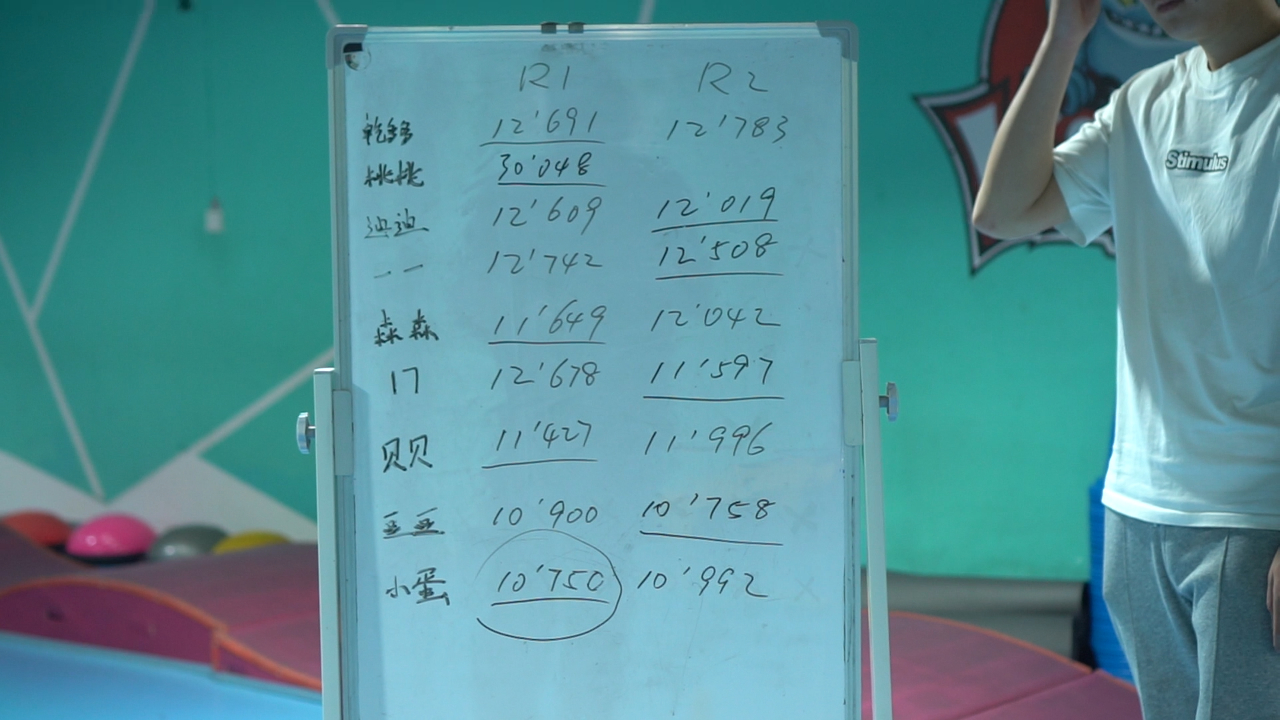 R1 R2
乾多多 12'691 12'783
桃桃 30'048
迪迪 12'609 12'019
一一 12'742 12'508
森森 11'649 12'042
17 12'678 11'597
贝贝 11'427 11'996
10'900 10'758
小蛋 10'750 10'992
Stimulus